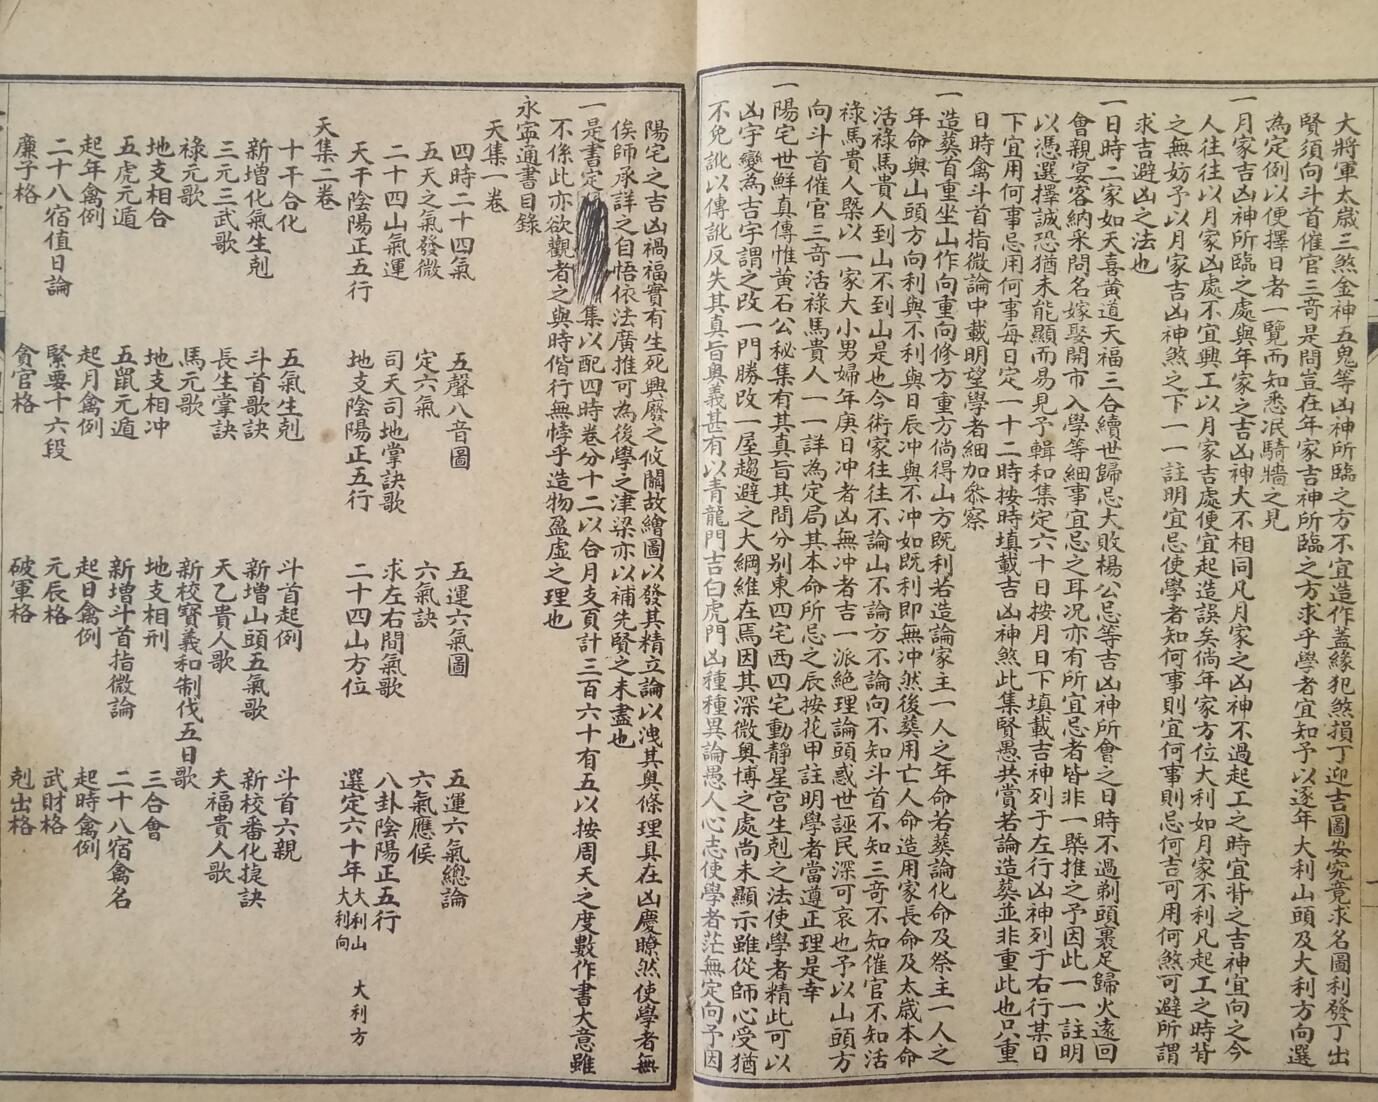 大將軍太歲三煞金神五鬼等凶神所臨之方不宜造作蓋緣犯煞損丁迎吉圖安究竟求名圖利發丁出
賢須向斗首催官三奇是問豈在年家吉神所臨之方求乎學者宜知予以逐年大利山頭及大利方向選
為定例以便擇日者一覽而知悉泯騎牆之見
一月家吉凶神所臨之處與年家之吉凶神大不相同凡月家之凶神不過起工之時宜背之吉神宜向之今
人往往以月家凶處不宜興工以月家吉處便宜起造誤矣倘年家方位大利如月家不利凡起工之時背
之無妨予以月家吉凶神煞之下一一註明宜忌使學者知何事則宜何事則忌何吉可用何煞可避所謂
求吉避凶之法也
一日時二家如天喜黃道天福三合續世歸忌大敗楊公忌等吉凶神所會之日時不過剃頭裹足歸火遠回
會親宴客納采問名嫁娶開市入學等細事宜忌之耳况亦有所宜忌者皆非一槩推之予因此一一註明
以憑選擇誠恐猶未能顯而易見予輯和集定六十日按月日下填載吉神列于左行凶神列于右行某日
下宜用何事忌用何事每日定一十二時按時填載吉凶神煞此集賢愚共賞若論造葬並非重此也只重
日時禽斗首指微論中載明望學者細加叅察
一造葬首重坐山作向重向修方重方倘得山方既利若造論家主一人之年命若葬論化命及祭主一人之
年命與山頭方向利與不利與日辰冲與不冲如既利即無冲然後葬用亡人命造用家長命及太歲本命
活祿馬貴人到山不到山是也今術家往往不論山不論方不論向不知斗首不知三奇不知催官不知活
祿馬貴人槩以一家大小男婦年庚日冲者凶無冲者吉一派絶理論頭惑世誣民深可哀也予以山頭方
向斗首催官三奇活祿馬貴人一一詳為定局其本命所忌之辰按花甲註明學者當遵正理是幸
一陽宅世鮮真傳惟黃石公秘集有其真旨其間分別東四宅西四宅動靜星宮生剋之法使學者精此可以
凶宇變為吉宇謂之改一門勝改一屋趨避之大綱維在焉因其深微奥博之處尚未顯示雖從師心受猶
不免訛以傳訛反失其真旨奥義甚有以青龍門吉白虎門凶種種異論愚人心志使學者茫無定向予因
陽宅之吉凶禍福實有生死興廢之攸關故繪圖以發其精立論以洩其奥條理具在凶慶瞭然使學者無
俟師承詳之自悟依法廣推可為後學之津梁亦以補先賢之未盡也
一是書定 集以配四時卷分十二以合月支頁計三百六十有五以按周天之度數作書大意雖
不係此亦欲觀者之與時偕行無悖乎造物盈虛之理也
永寍通書目錄
天集一卷
四時二十四氣 五聲八音圖 五運六氣圖 五運六氣總論
五天之氣發微 定六氣 六氣訣 六氣應候
二十四山氣運 司天司地掌訣歌 求左右間氣歌 八卦陰陽正五行
天干陰陽正五行 地支陰陽正五行 二十四山方位 選定六十年大利山大利向 大利方
天集二卷
十干合化 五氣生剋 斗首起例 斗首六親
新增化氣生剋 斗首歌訣 新增山頭五氣歌 新校番化㨗訣
三元三武歌 長生掌訣 天乙貴人歌 天福貴人歌
祿元歌 馬元歌 新校寶義和制伐五日歌
地支相合 地支相冲 地支相刑 三合會
五虎元遁 五鼠元遁 新增斗首指微論 二十八宿禽名
起年禽例 起月禽例 起日禽例 起時禽例
二十八宿值日論 緊要十六段 元辰格 武財格
廉子格 貪官格 破軍格 剋出格